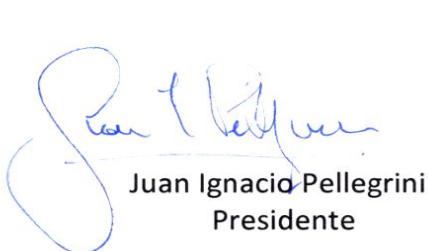 Juan Ignacio Pellegrini
Presidente